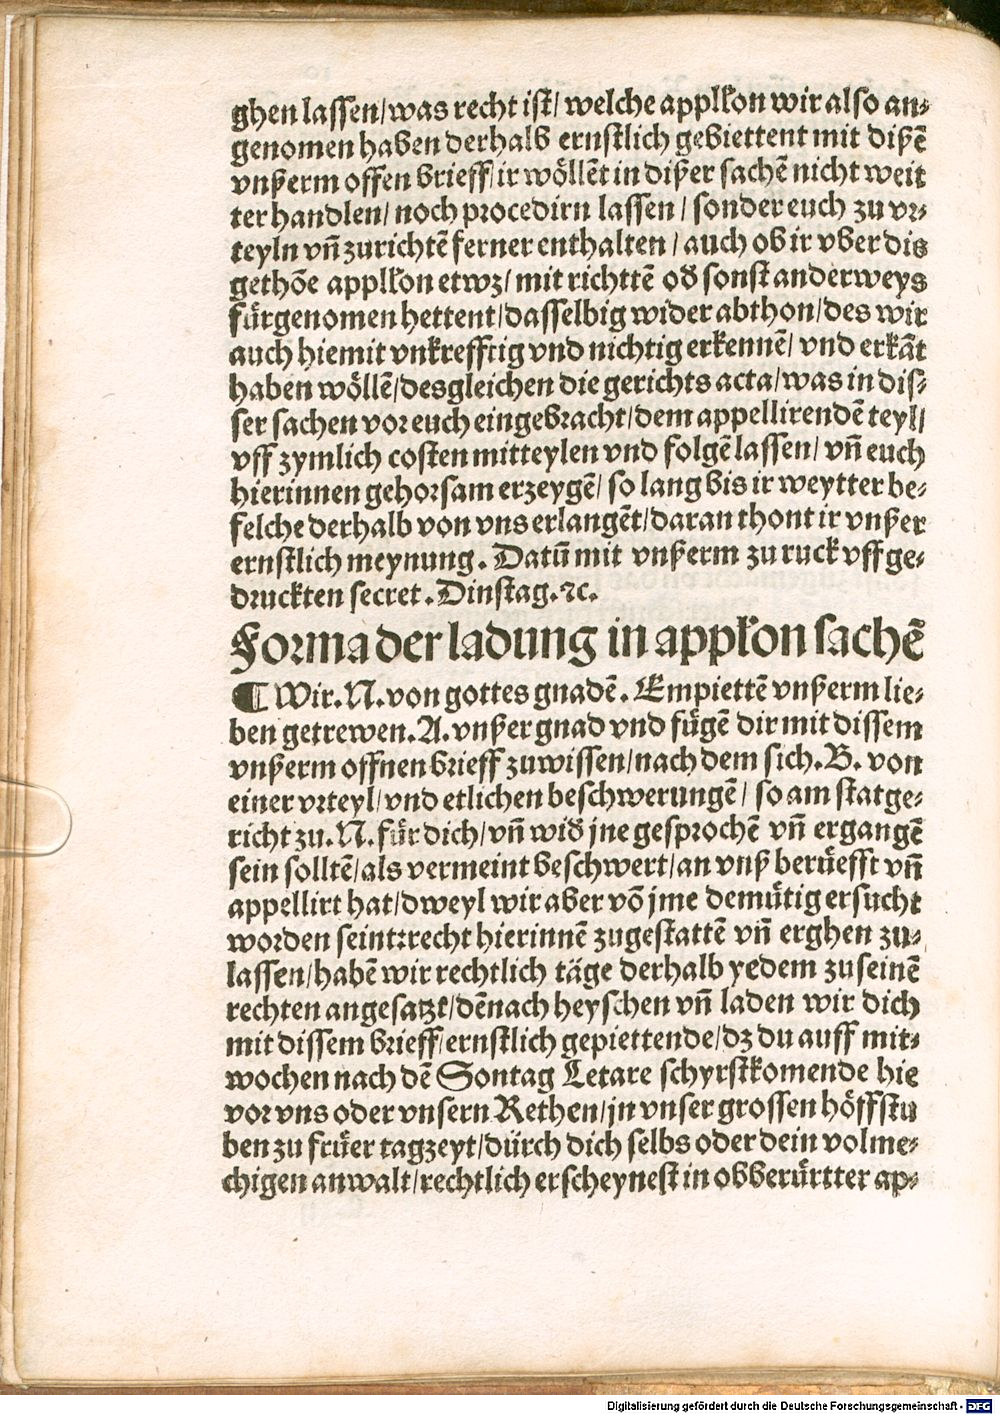 ghen lassen/was recht ist/ welche applkon wir also an⸗
genomen haben derhalb ernstlich gebiettent mit dißẽ
vnßerm offen brieff/ir wöllẽt in dißer sachẽ nicht weit
ter handlen/ noch procedirn lassen / sonder euch zu vr⸗
teyln vñ zurichtẽ ferner enthalten / auch ob ir vber dis
gethõe applkon etwz/ mit richttẽ oď sonst anderweys
fürgenomen hettent/dasselbig wider abthon/des wir
auch hiemit vnkrefftig vnd nichtig erkennẽ/ vnd erkãt
haben wöllẽ/desgleichen die gerichts acta/was in dis⸗
ser sachen vor euch eingebracht/dem appellirendẽ teyl/
vff zymlich costen mitteylen vnd folgẽ lassen/ vñ euch
hierinnen gehorsam erzeygẽ/ so lang bis ir weytter be⸗
felche derhalb von vns erlangẽt/daran thont ir vnßer
ernstlich meynung. Datũ mit vnßerm zu ruck vff ge⸗
druckten secret. Dinstag. ⁊c.
Forma der ladung in appkon sachẽ
¶ Wir. N. von gottes gnadẽ. Empiettẽ vnßerm lie⸗
ben getrewen. A. vnßer gnad vnd fügẽ dir mit dissem
vnßerm offnen brieff zuwissen/nach dem sich. B. von
einer vrteyl/vnd etlichen beschwerungẽ/ so am statge⸗
richt zu. N. für dich/vñ wiď jne gesprochẽ vñ ergangẽ
sein solltẽ/als vermeint beschwert/an vnß berüefft vñ
appellirt hat/dweyl wir aber võ jme demütig ersucht
worden seint:recht hierinnẽ zugestattẽ vñ erghen zu⸗
lassen/habẽ wir rechtlich täge derhalb yedem zuseinẽ
rechten angesatzt/dẽnach heyschen vñ laden wir dich
mit dissem brieff/ernstlich gepiettende/dz du auff mit⸗
wochen nach dẽ Sontag Letare schyrstkomende hie
vor vns oder vnsern Rethen/jn vnser grossen höffstu
ben zu früer tagzeyt/dürch dich selbs oder dein volme⸗
chigen anwalt/rechtlich erscheynest in obberürtter ap⸗
Digitalisierung gefördert durch die Deutsche Forschungsgemeinschaft - DFG